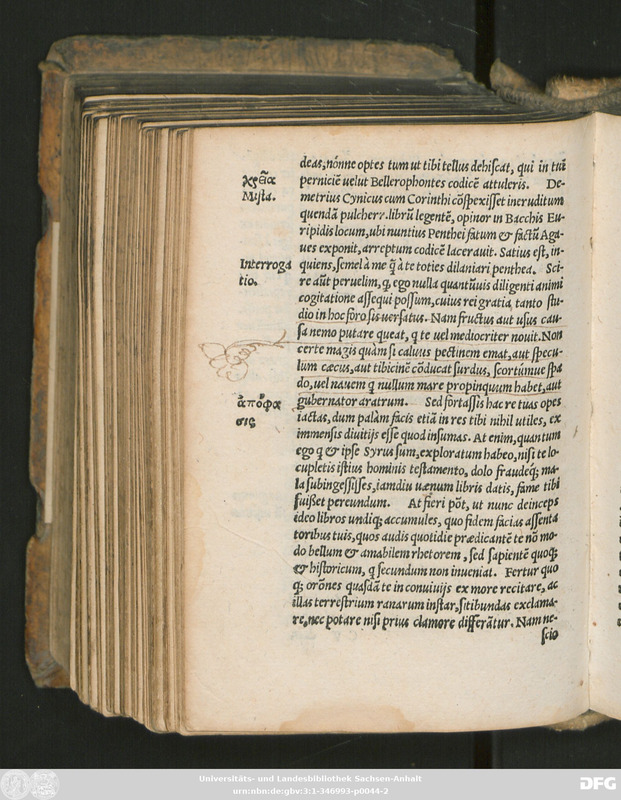 deas, nónne optes tum ut tibi tellus dehiscat, qui in tuā
χρεία
perniciē uelut Bellerophontes codicē attuleris. De-
Mista.
metrius Cynicus cum Corinthi cōspexisset ineruditum
quendā pulcherr. librū legentē, opinor in Bacchis Eu-
ripidis locum, ubi nuntius Penthei fatum & factū Aga-
ues exponit, arreptum codicē lacerauit. Satius est, in-
Interroga
quiens, semel à me q̄ à te toties dilaniari penthea. Sci-
tio.
re aūt peruelim, q, ego nulla quantūuis diligenti animi
cogitatione assequi possum, cuius rei gratia tanto stu-
dio in hoc foro sis uersatus. Nam fructus aut usus cau-
sa nemo putare queat, q te uel mediocriter nouit. Non
certe magis quàm si caluus pectinem emat, aut specu-
lum cæcus, aut tibicinē cōducat surdus, scortúmue spa
do, uel nauem q nullum mare propinquum habet, aut
ἀπόφα
gubernator aratrum. Sed fortassis hac re tuas opes
σις
iactas, dum palàm facis etiā in res tibi nihil utiles, ex
immensis diuitijs esse quod insumas. At enim, quantum
ego q & ipse Syrus sum, exploratum habeo, nisi te lo-
cupletis istius hominis testamento, dolo fraudeq; ma-
la subingessisses, iamdiu uænum libris datis, fame tibi
fuisset pereundum. At fieri pōt, ut nunc deinceps
ideo libros undiq; accumules, quo fidem facias assenta
toribus tuis, quos audis quotidie prædicantē te nō mo-
do bellum & amabilem rhetorem, sed sapientē quoq;
& historicum, q secundum non inueniat. Fertur quo
q; orōnes quasdā te in conuiuijs ex more recitare, ac
illas terrestrium ranarum instar, sitibundas exclama-
re, nec potare nisi prius clamore differātur. Nam ne-
scio
Universitäts- und Landesbibliothek Sachsen-Anhalt
urn:nbn:de:gbv:3:1-346993-p0044-2
DFG